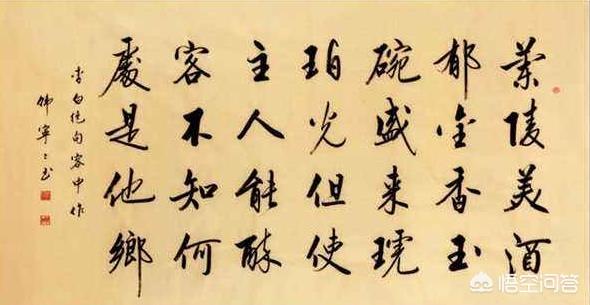 蘭陵美酒
郁金香玉
碗盛来琥
珀光但使
主人能醉
客不知何
處是他鄉
李白绝句客中作
韩寧〻书
悟空问答